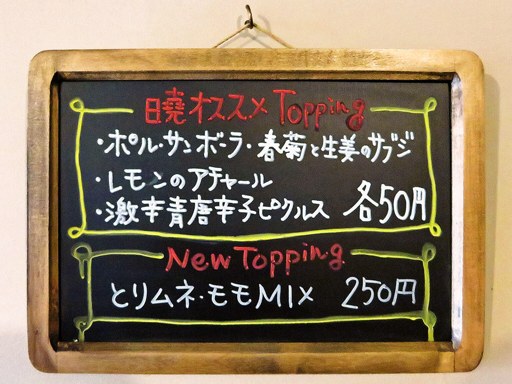 曉オススメ Topping
・ポル・サンボーラ・春菊と生姜のサブジ
・レモンのアチャール
・激辛青唐辛子ピクルス 各50円
New Topping
とりムネ・モモMIX 250円